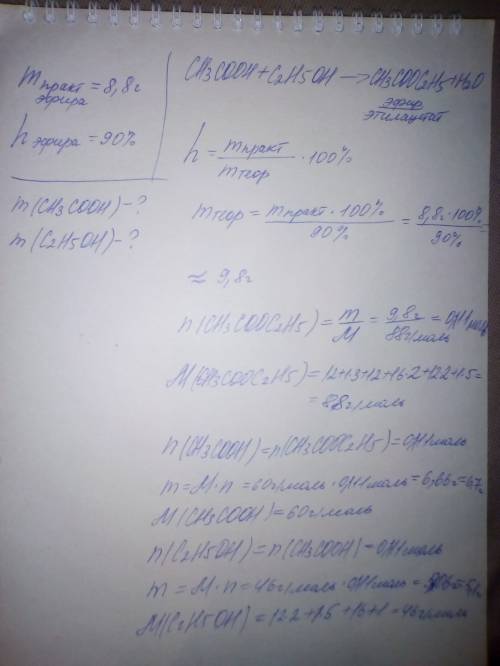 mпракт = 8,8г
эфира
h эфира = 90%
m(CH3COOH) - ?
m(C2H5OH) - ?
CH3COOH + C2H5OH → CH3COOC2H5 + H2O
эфир
этилацетат
h = mпракт / mтеор · 100%
mтеор = mпракт · 100% / 90% = 8,8г · 100% / 90% =
≈ 9,8г
n(CH3COOC2H5) = m / M = 9,8г / 88г/моль = 0,111моль
M(CH3COOC2H5) = 12+1·3+12+16·2+12·2+1·5=
= 88г/моль
n(CH3COOH) = n(CH3COOC2H5) = 0,111моль
m = M · n = 60г/моль · 0,111моль = 6,66г = 6,7г
M(CH3COOH) = 60г/моль
n(C2H5OH) = n(CH3COOH) = 0,111моль
m = M · n = 46г/моль · 0,111моль =
M(C2H5OH) = 12·2+1·5+16+1 = 46г/моль